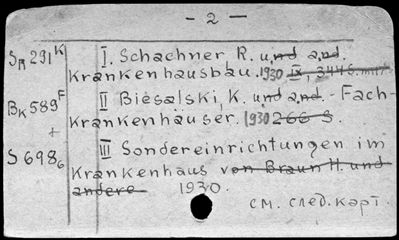 - 2 -
SR 291K I. Schachner R. und and.
Krankenhausbau. 1930 IX, 344 S. mit
BK 589F II Biesalski, K. und and. - Fach-
+ Krankenhäuser. 1930 266 S.
S 6986 III Sondereinrichtungen im
Krankenhaus von Braun H. und
andere 1930.
см. след. карт.